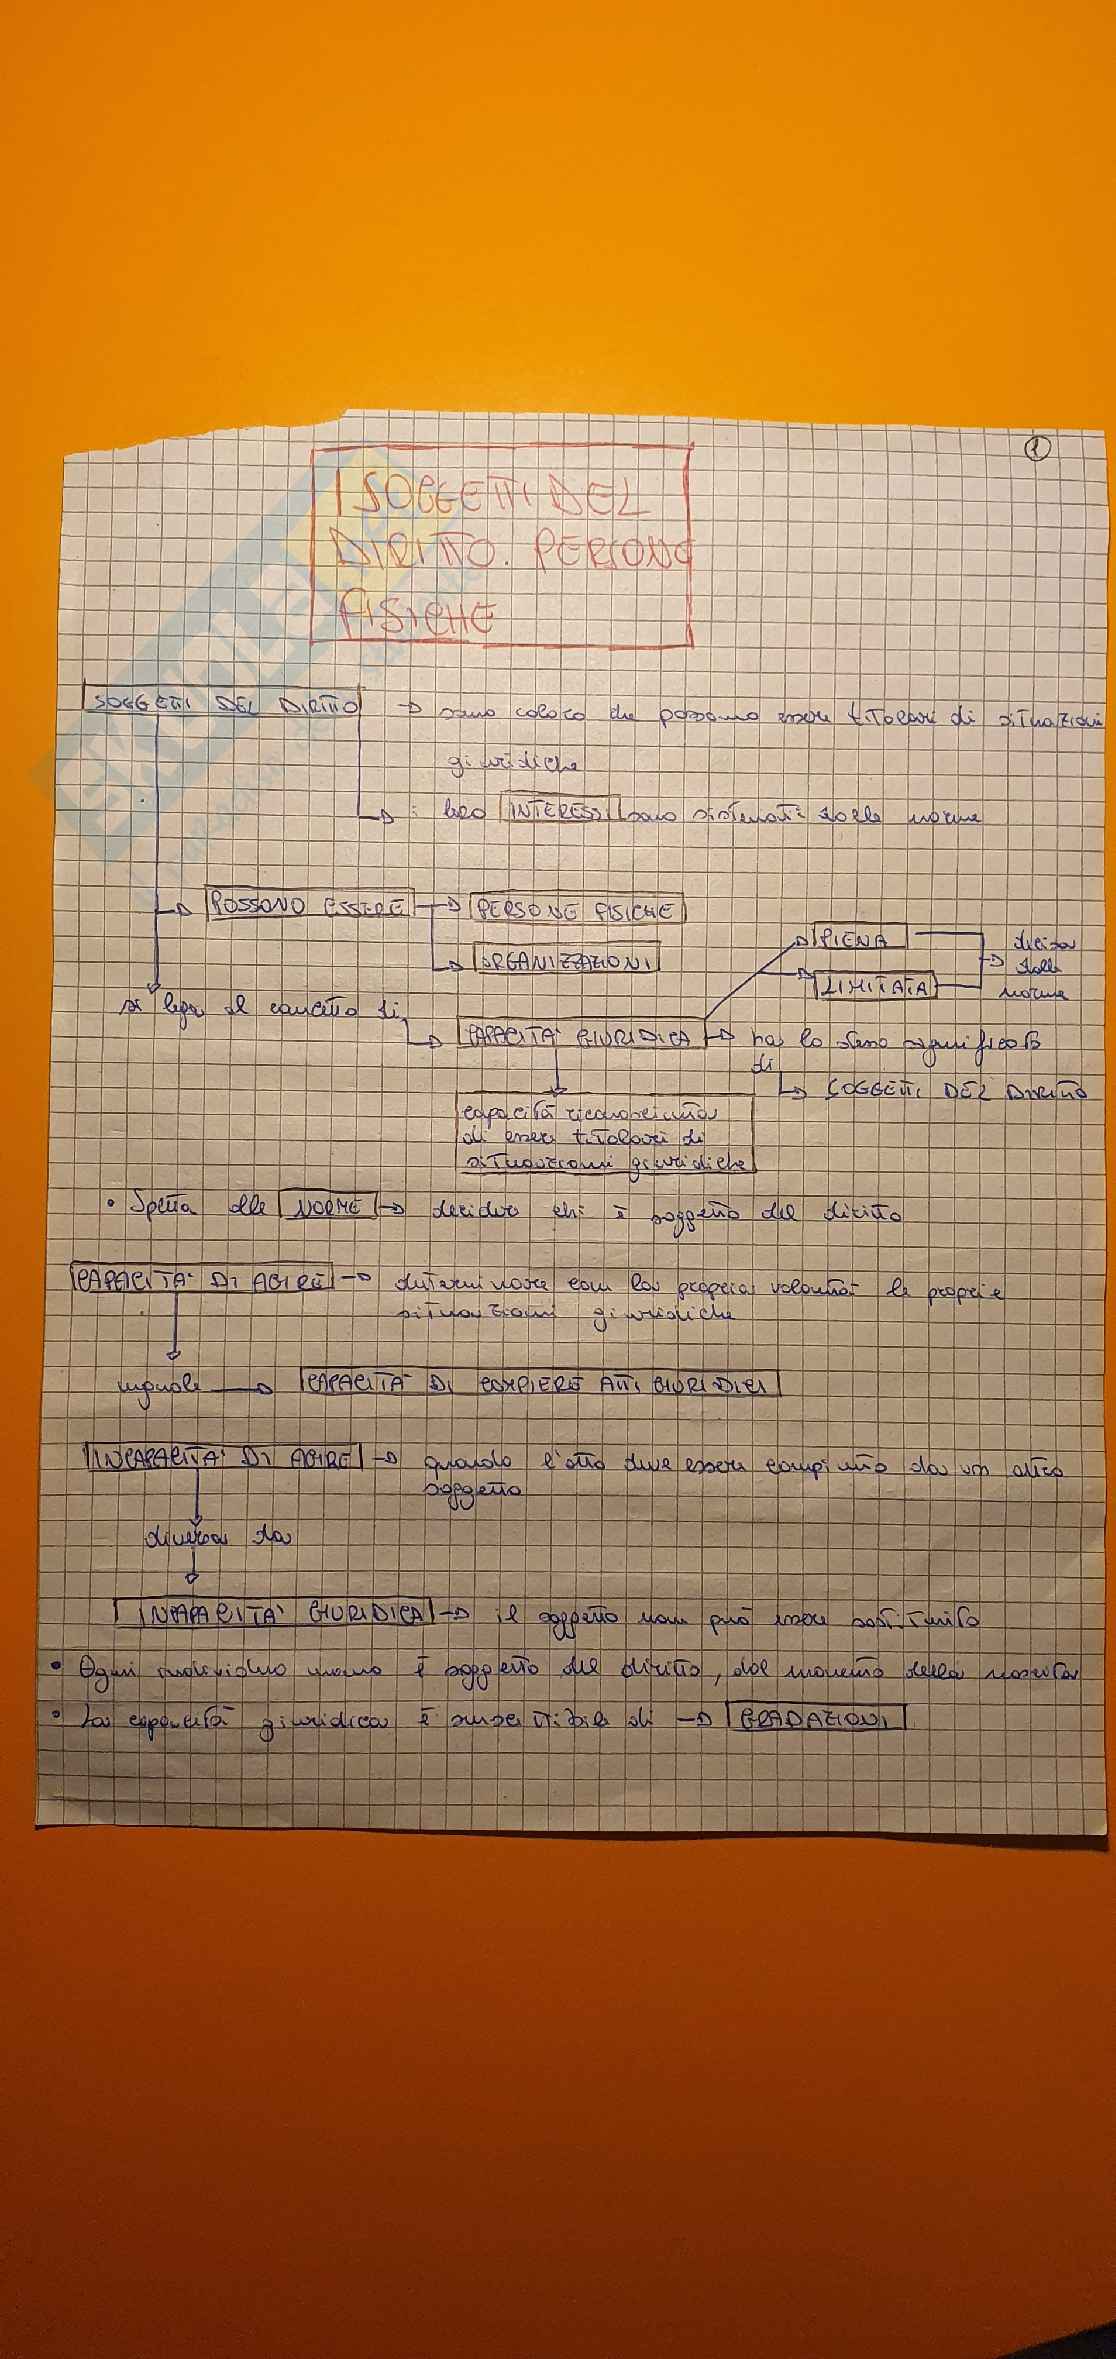 1
I SOGGETTI DEL
DIRITTO. PERSONE
FISICHE
SOGGETTI DEL DIRITTO → sono coloro che possono essere titolari di situazioni
giuridiche
→ i loro INTERESSI sono sistemati dalle norme
→ POSSONO ESSERE → PERSONE FISICHE
→ ORGANIZZAZIONI
→ PIENA
→ LIMITATA
→ decisa
dalle
norme
si lega il concetto di
→ CAPACITÀ GIURIDICA → ha lo stesso significato
di
→ SOGGETTI DEL DIRITTO
capacità riconosciuta
di essere titolari di
situazioni giuridiche
• Spetta alle NORME → decidere chi è soggetto del diritto
CAPACITÀ DI AGIRE → determinare con la propria volontà le proprie
situazioni giuridiche
uguale → CAPACITÀ DI COMPIERE ATTI GIURIDICI
INCAPACITÀ DI AGIRE → quando l'atto deve essere compiuto da un altro
soggetto
diversa da
INCAPACITÀ GIURIDICA → il soggetto non può essere sostituito
• Ogni individuo umano è soggetto del diritto, dal momento della nascita
• La capacità giuridica è suscettibile di → GRADAZIONI